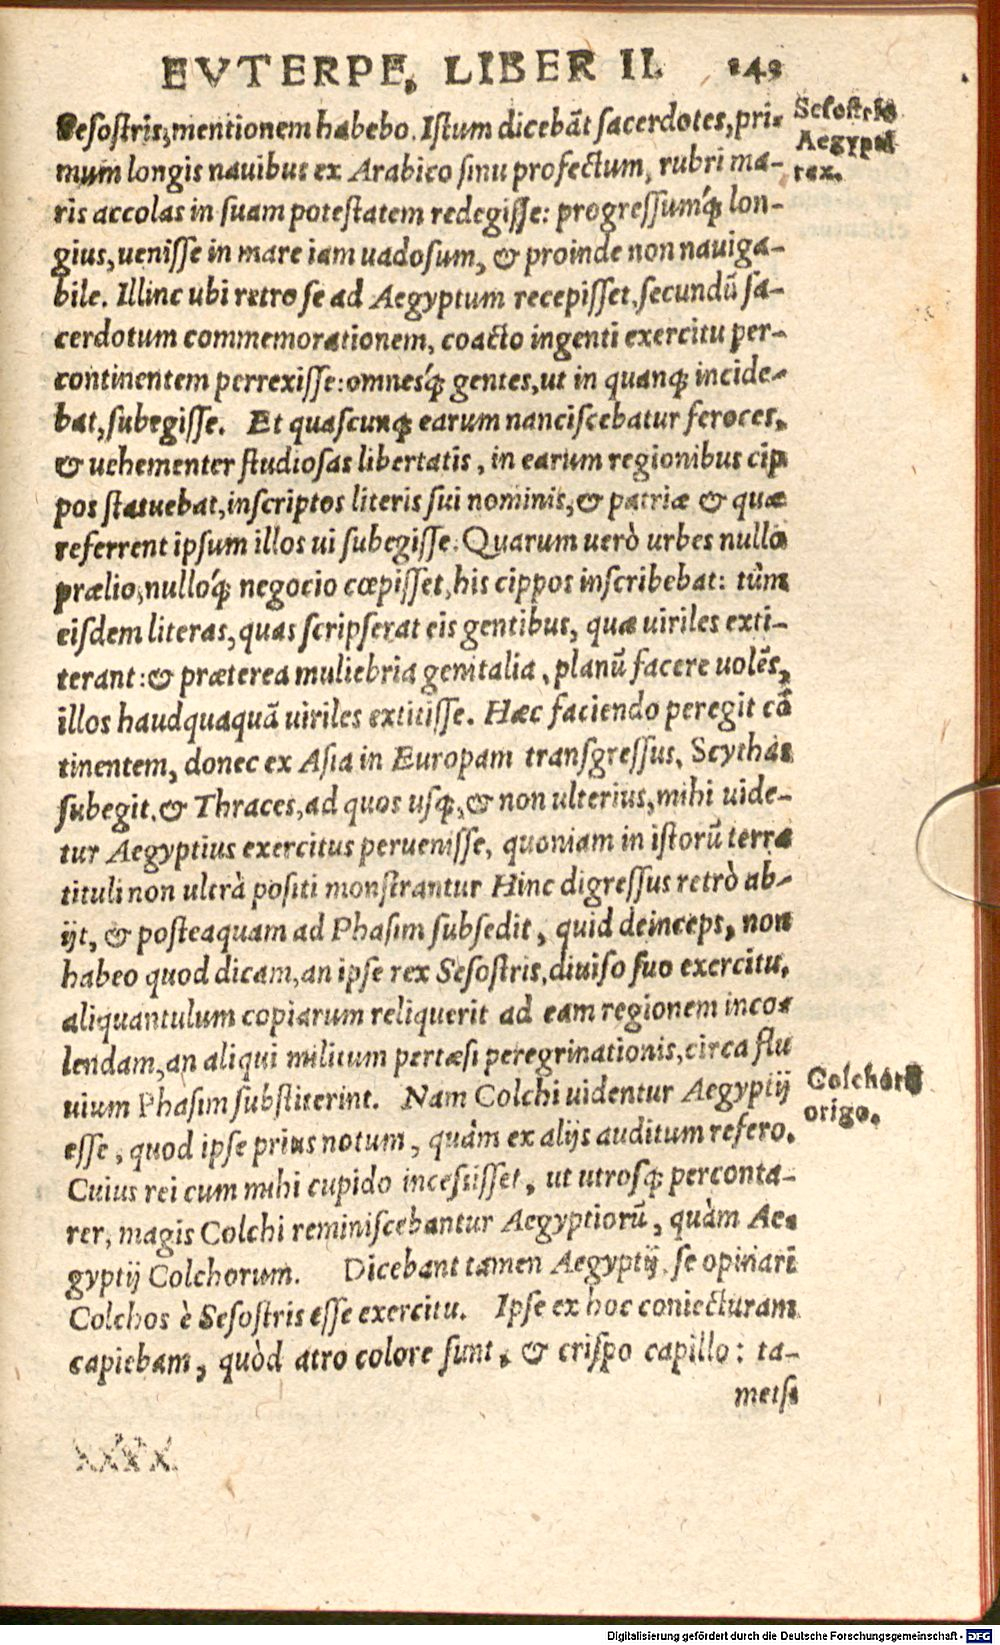 EVTERPE, LIBER II. 
Sesostris, mentionem habebo. Istum dicebāt sacerdotes, pri-
Sesostris
mum longis nauibus ex Arabico sinu profectum, rubri ma-
Aegypti
rex.
ris accolas in suam potestatem redegisse: progressumq́; lon-
gius, uenisse in mare iam uadosum, & proinde non nauiga-
bile. Illinc ubi retro se ad Aegyptum recepisset, secundū sa-
cerdotum commemorationem, coacto ingenti exercitu per-
continentem perrexisse: omnesq́; gentes, ut in quanq; incide-
bat, subegisse. Et quascunq; earum nanciscebatur feroces,
& uehementer studiosas libertatis, in earum regionibus cip
pos statuebat, inscriptos literis sui nominis, & patriæ & quæ
referrent ipsum illos ui subegisse. Quarum uerò urbes nullo
prælio, nulloq́; negocio cœpisset, his cippos inscribebat: tùm
eisdem literas, quas scripserat eis gentibus, quæ uiriles exti-
terant: & præterea muliebria genitalia, planū facere uolēs,
illos haudquaquā uiriles extitisse. Hæc faciendo peregit cō
tinentem, donec ex Asia in Europam transgressus, Scythas
subegit, & Thraces, ad quos usq;, & non ulterius, mihi uide-
tur Aegyptius exercitus peruenisse, quoniam in istorū terra
tituli non ultrà positi monstrantur Hinc digressus retrò ab-
ijt, & posteaquam ad Phasim subsedit, quid deinceps, non
habeo quod dicam, an ipse rex Sesostris, diuiso suo exercitu,
aliquantulum copiarum reliquerit ad eam regionem inco-
lendam, an aliqui militum pertæsi peregrinationis, circa flu
uium Phasim substiterint. Nam Colchi uidentur Aegyptij
Colchorū
origo.
esse, quod ipse prius notum, quàm ex alijs auditum refero.
Cuius rei cum mihi cupido incessisset, ut utrosq; perconta-
rer, magis Colchi reminiscebantur Aegyptiorū, quàm Ae-
gyptij Colchorum. Dicebant tamen Aegyptij, se opinari
Colchos è Sesostris esse exercitu. Ipse ex hoc coniecturam
capiebam, quòd atro colore sunt, & crispo capillo: ta-
metsi
Digitalisierung gefördert durch die Deutsche Forschungsgemeinschaft - DFG